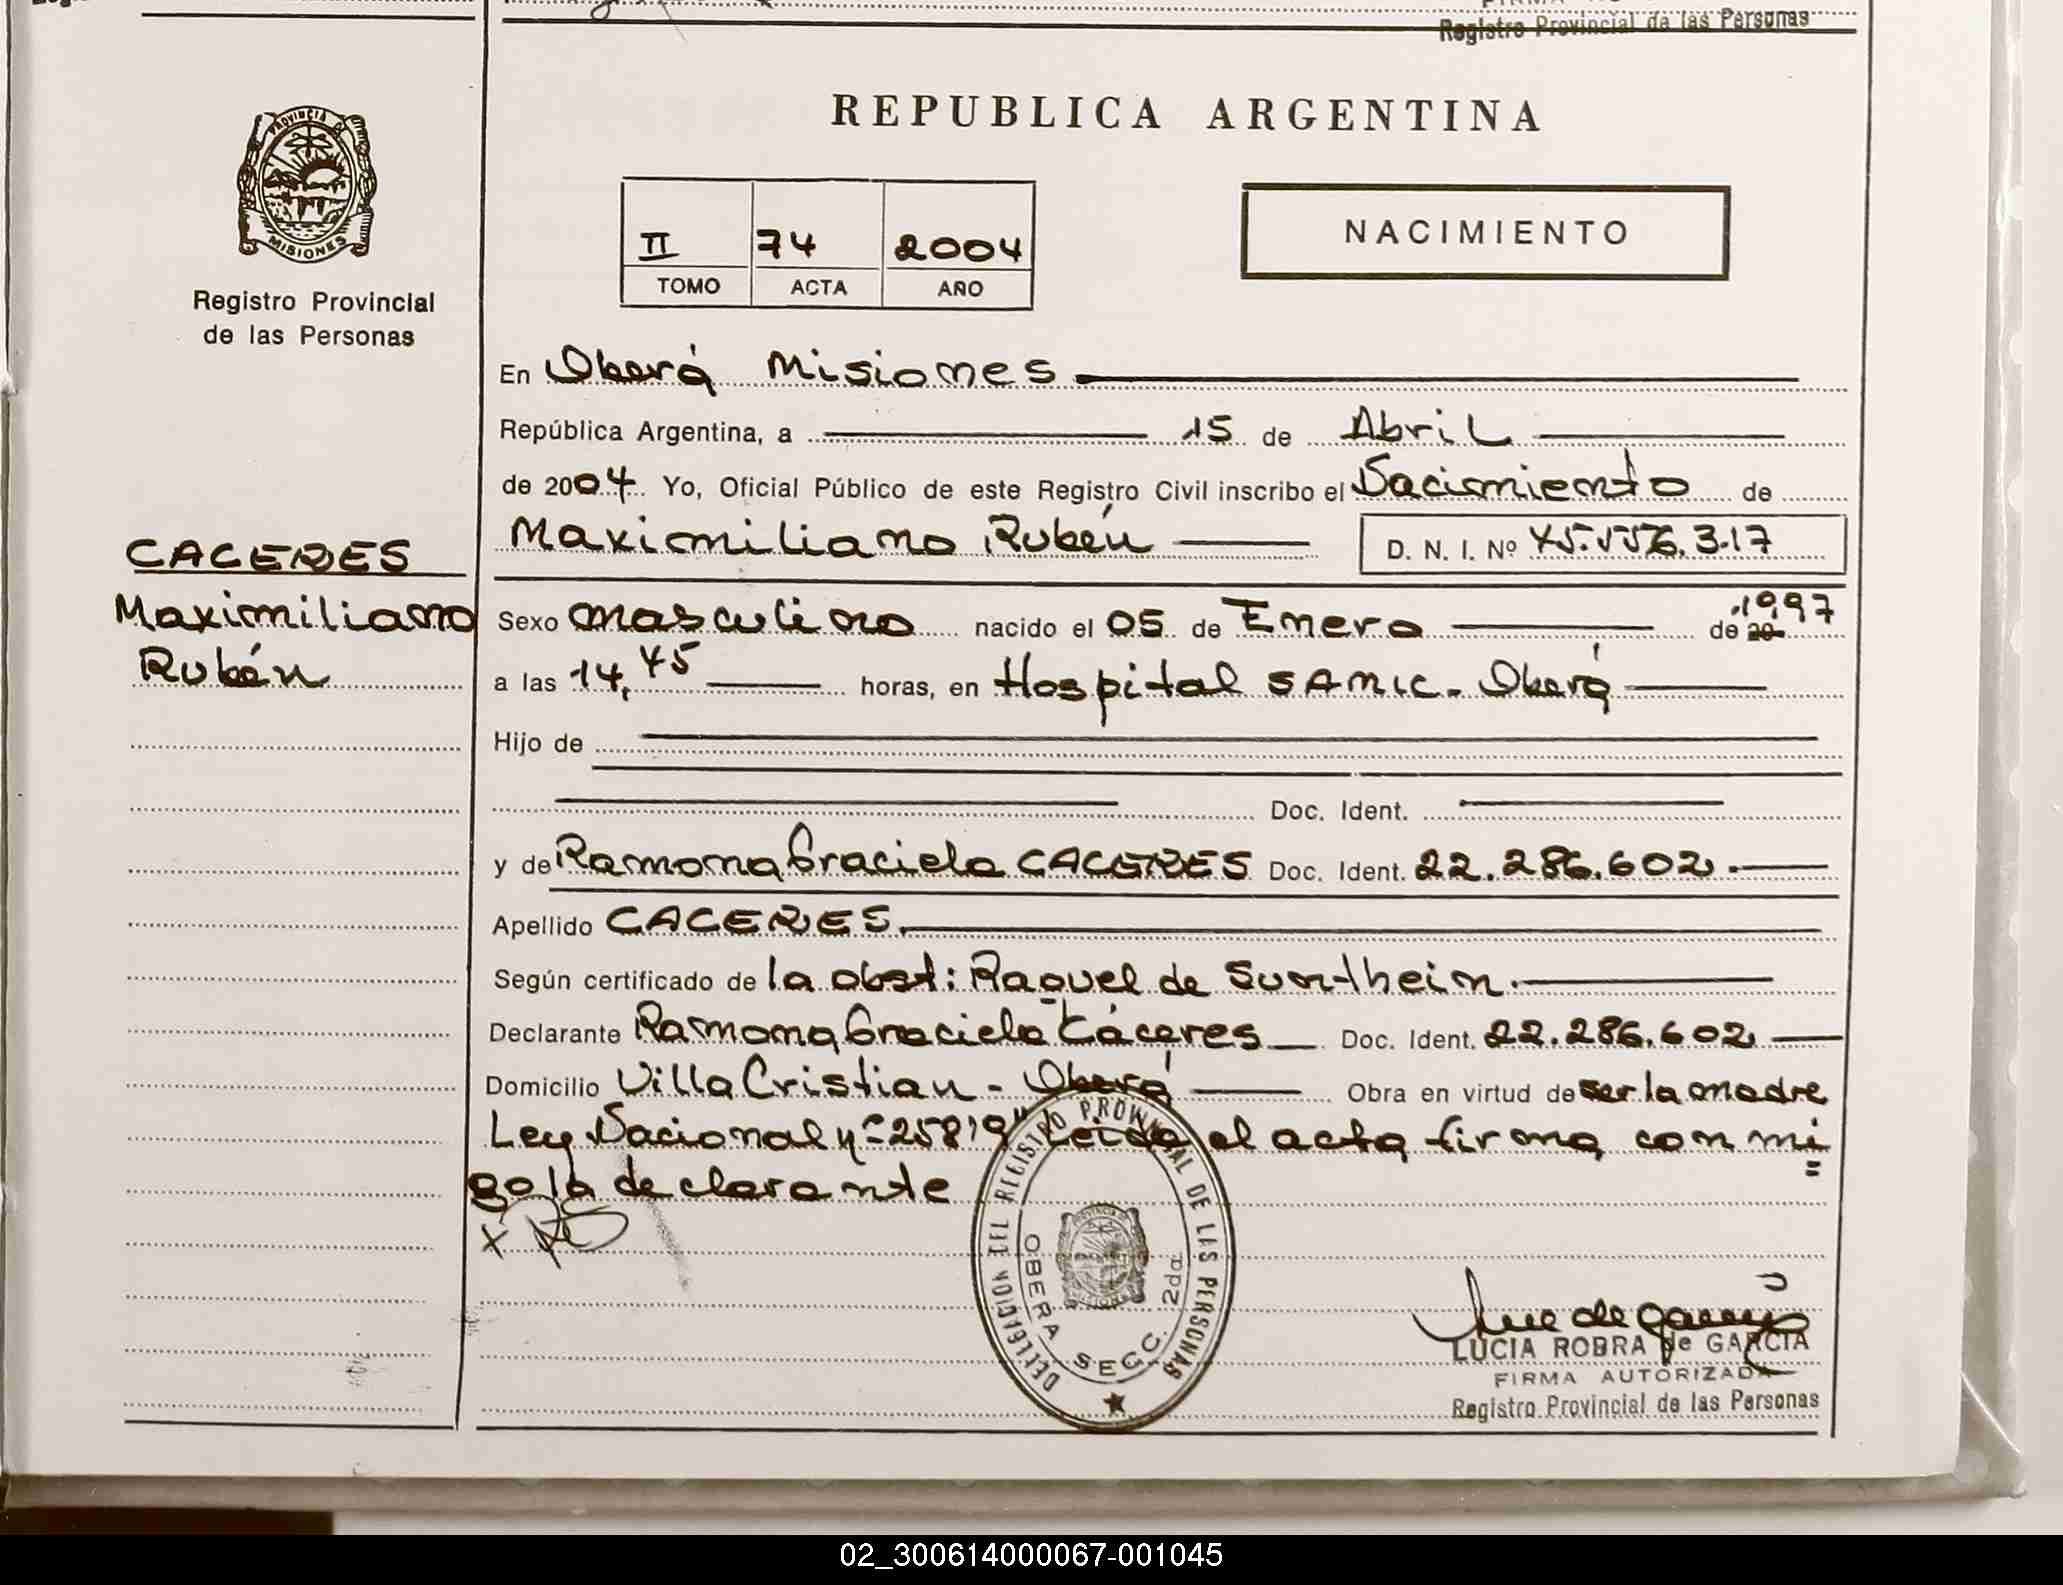 Registro Provincial de las Personas
REPUBLICA ARGENTINA
PROVINCIA DE
MISIONES
Registro Provincial
de las Personas
II 74 2004
TOMO ACTA AÑO
NACIMIENTO
En Oberá Misiones
República Argentina, a 15 de Abril
de 2004 Yo, Oficial Público de este Registro Civil inscribo el Nacimiento de
Maximiliano Rubén D. N. I. Nº
CACERES
Maximiliano
Rubén
Sexo masculino nacido el 05 de Enero de 20 1997
a las 14,45 horas, en Hospital SAMIC. Oberá
Hijo de
Doc. Ident.
y de Ramona Graciela CACERES Doc. Ident. 22.286.602.
Apellido CACERES.
Según certificado de la obst: Raquel de Suntheim.
Declarante Ramona Graciela Cáceres Doc. Ident. 22.286.602
Domicilio Villa Cristian - Oberá Obra en virtud de ser la madre
Ley Nacional nº 25819" Leida el acta firma con mi
go la declarante
x
DELEGACION DEL REGISTRO PROVINCIAL DE LAS PERSONAS
OBERA SECC. 2da.
LUCIA ROBRA de GARCIA
FIRMA AUTORIZADA
Registro Provincial de las Personas
02_300614000067-001045